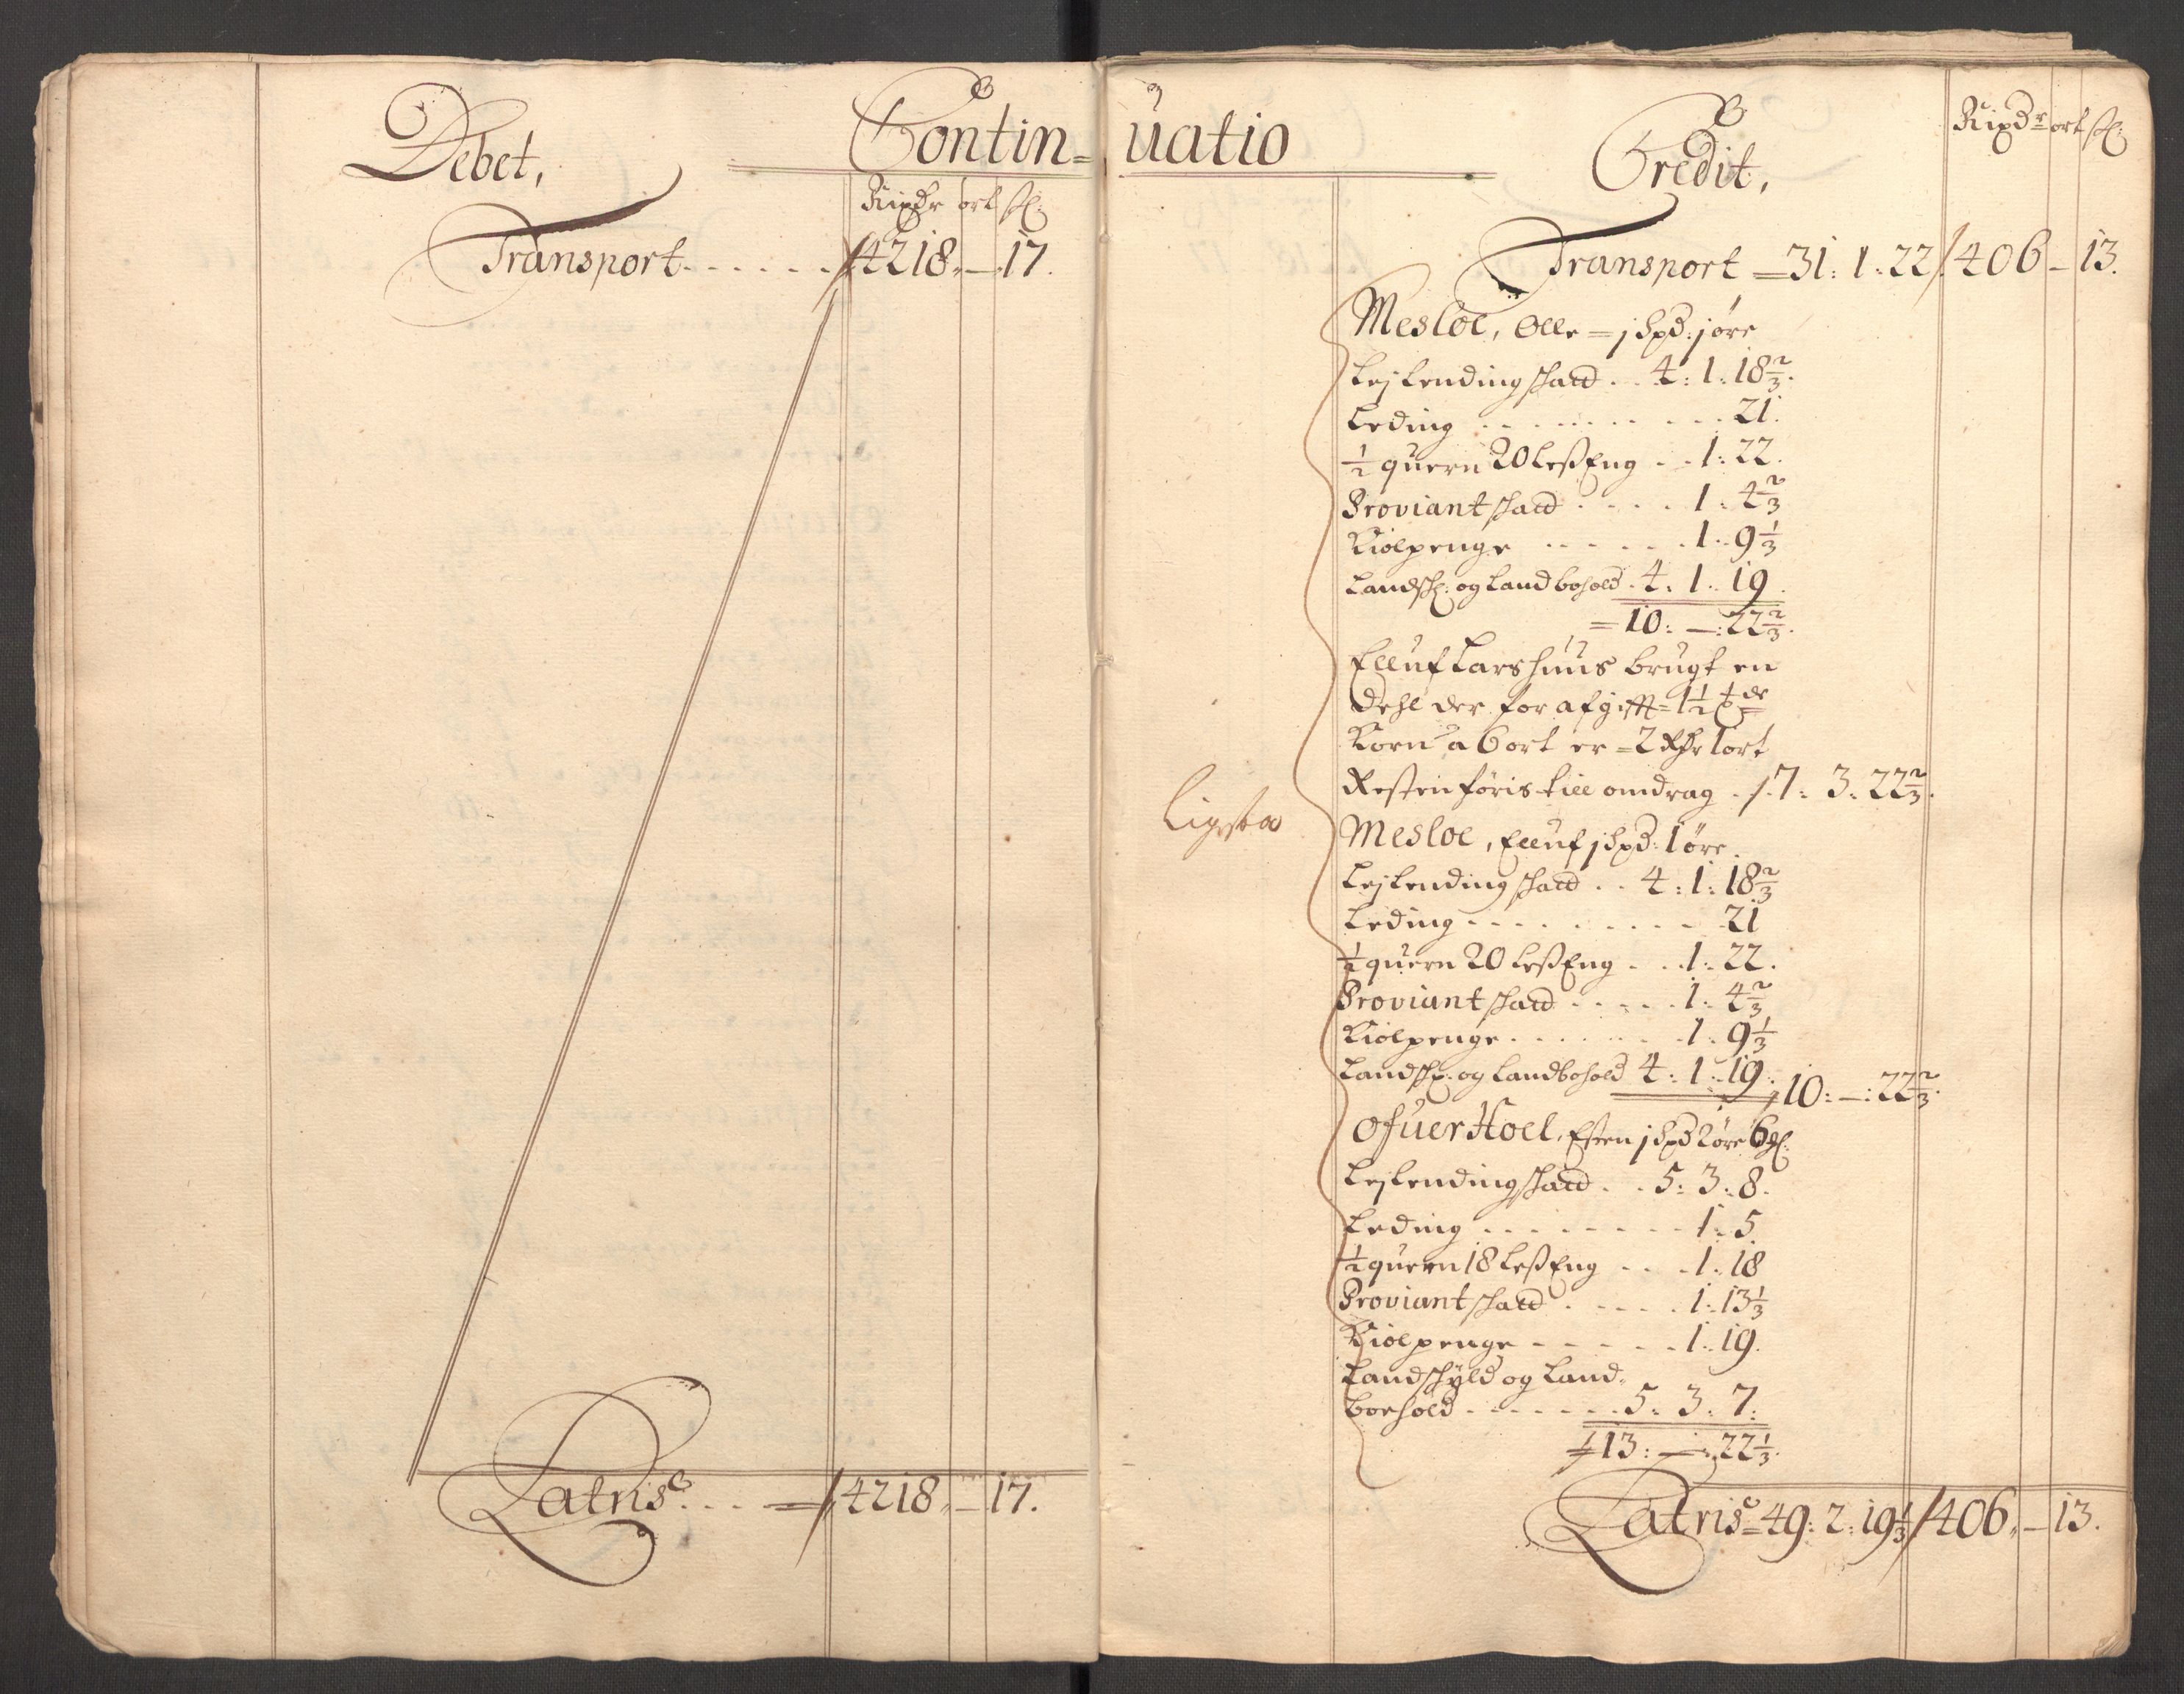 Debet,
Contin=
Rixdr ort sk:
Transport. . . . . . 4218. — 17.
Latris. . . . = 4218. — 17.
uatio
Credit,
Rixdr ort sk:
Transport = 31: 1: 22 / 406 — 13.
Mesloe, Olle = j Spd: j øre
Lejlending skatt . . 4: 1: 18 2/3.
Leding . . . . . . . . . . 21.
1/2 quern 20 Less Eng . . 1: 22.
Proviant skatt . . . . 1: 4 2/3
Kiolpenge . . . . . 1: 9 1/3
Landsk: og Landbohold . 4: 1: 19.
= 10: —: 22 2/3.
Elluf Larshuus brugt en
Dehl der for afgifft = 1 1/2 tde
Korn a 6 ort er = 2 Rdr 1 ort
Resten føris till omdrag . 7: 3: 22 2/3.
Ligesta
Mesloe, Elluf j Spd: 1 øre.
Lejlending skatt . . 4: 1: 18 2/3
Leding . . . . . . . . . 21
1/2 quern 20 Less Eng . . 1: 22.
Proviant skatt . . . . . 1: 4 2/3
Kiolpenge . . . . . . . 1: 9 1/3
Landsk: og Landbohold 4: 1: 19. 10: —: 22 2/3.
Ofuer Hoel, Esten j Spd 2 øre 6 sk:
Lejlending skatt . . 5: 3: 8.
Leding . . . . . . . . 1: 5.
1/2 quern 18 Less Eng . . . 1: 18
Proviant skatt . . . . . 1: 13 1/3
Kiolpenge . . . . . 1: 19.
Landschyld og Land-
boehold . . . . . . . 5: 3: 7.
13: —: 22 1/3.
Latris = 49: 2: 19 1/3 / 406. — 13.